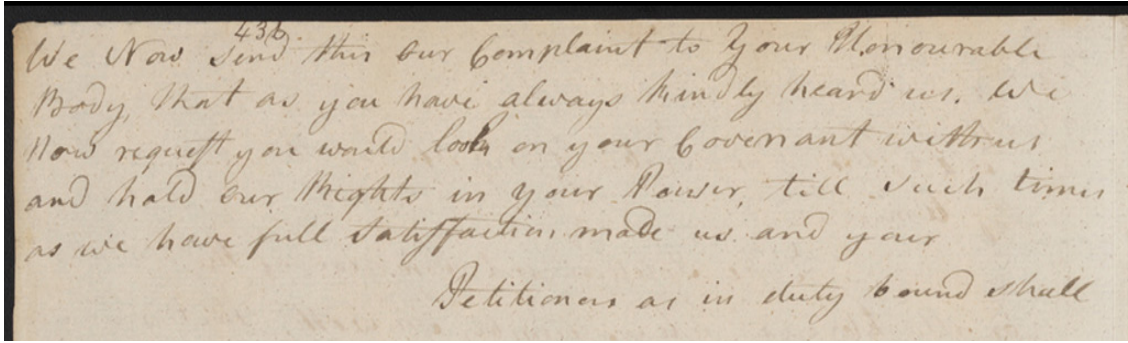 436.
We Now send this our Complaint to Your Honourable
Body, that as you have always kindly heard us. We
Now request you would look on your Covenant with us
and hold our Rights in your Power, till such times
as we have full Satisfaction made us and your
Petitioners as in duty bound shall